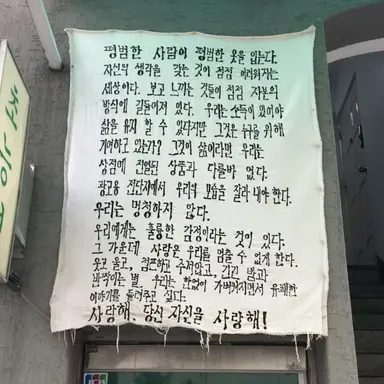 평범한 사람이 평범한 옷을 입는다.
자신의 생각을 갖는 것이 점점 어려워지는
세상이다. 보고 느끼는 것들이 점점 자본의
방식에 길들여져 있다. 우리는 소득이 있어야
삶을 유지 할 수 있다지만 그것은 누구를 위해
기여하고 있는가? 그것이 삶이라면 우리는
상점에 진열된 상품과 다를바 없다.
광고용 전단지에서 우리의 모습을 잘라 내야 한다.
우리는 멍청하지 않다.
우리에게는 훌륭한 감정이라는 것이 있다.
그 가운데 사랑은 우리를 멈출 수 없게 한다.
웃고 울고, 점프하고 주저앉고, 긴긴 밤과
반짝이는 별, 우리는 한없이 가벼워지면서 유쾌한
이야기를 들려주고 싶다.
사랑해, 당신 자신을 사랑해!